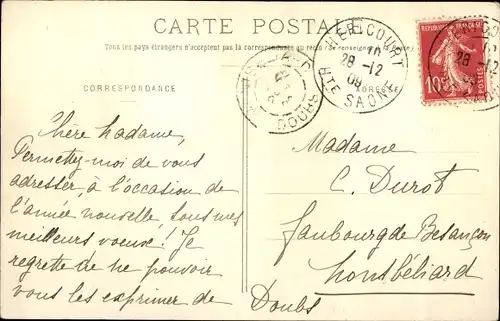 CARTE POSTALE
Tous les pays étrangers n'acceptent pas la correspondance au recto
CORRESPONDANCE
ADRESSE
HÉRICOURT
28 -12
09
HTE SAONE
DOUBS
10c
28 -12
Chère Madame,
Permettez-moi de vous
adresser, à l'occasion de
l'année nouvelle tous mes
meilleurs voeux! Je
regrette de ne pouvoir
vous les exprimer de
Madame
C. Durot
faubourg de Besançon
Montbéliard
Doubs